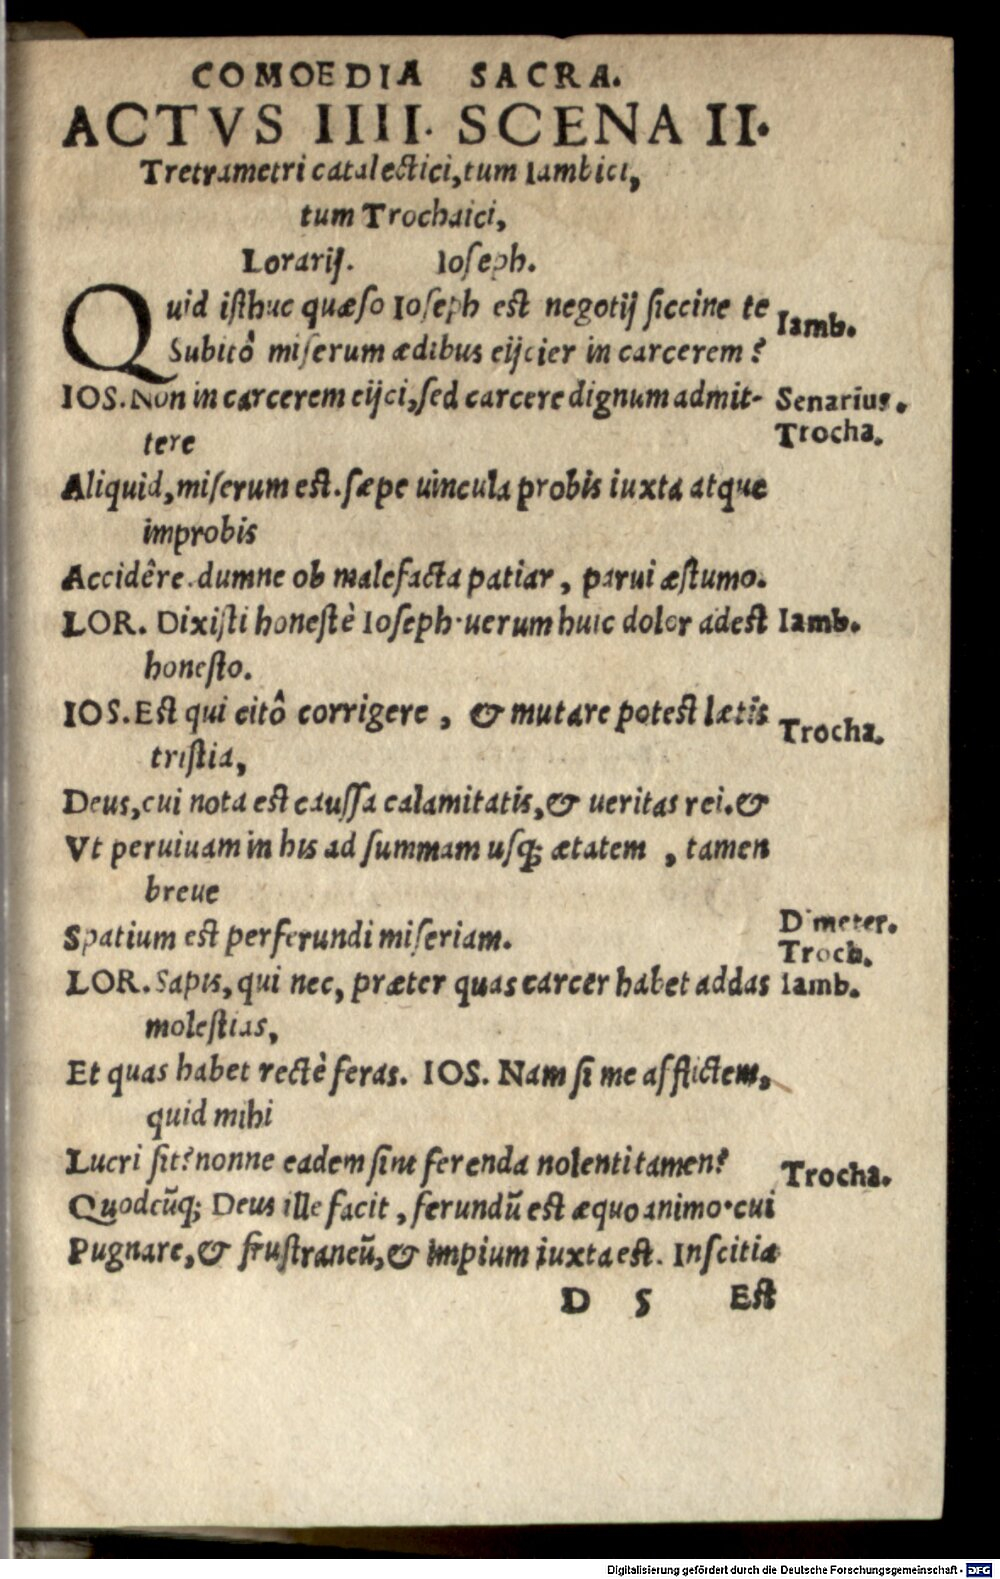 COMOEDIA SACRA.
ACTVS IIII. SCENA II.
Tretrametri catalectici, tum Iambici,
tum Trochaici,
Lorarij. Ioseph.
Quid isthuc quæso Ioseph est negotij siccine te
Iamb.
Subitô miserum ædibus eijcier in carcerem?
IOS. Non in carcerem eijci, sed carcere dignum admit- Senarius.
tere Trocha.
Aliquid, miserum est. sæpe uincula probis iuxta atque
improbis
Accidêre. dumne ob malefacta patiar, parui æstumo.
LOR. Dixisti honestè Ioseph. uerum huic dolor adest Iamb.
honesto.
IOS. Est qui citô corrigere, & mutare potest lætis
Trocha.
tristia,
Deus, cui nota est caussa calamitatis, & ueritas rei. &
Vt peruiuam in his ad summam usq; ætatem, tamen
breue
Dimeter.
Spatium est perferundi miseriam.
Troch.
LOR. Sapis, qui nec, præter quas carcer habet addas Iamb.
molestias,
Et quas habet rectè feras. IOS. Nam si me afflictem,
quid mihi
Lucri sit? nonne eadem sint ferenda nolenti tamen? Trocha.
Quodcũq; Deus ille facit, ferundũ est æquo animo. cui
Pugnare, & frustraneũ, & impium iuxta est. Inscitiæ
D 5 Est
Digitalisierung gefördert durch die Deutsche Forschungsgemeinschaft - DFG